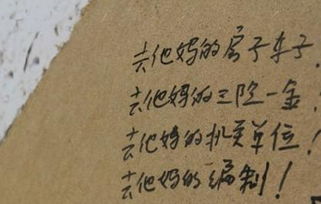 去他妈的房子车子，
去他妈的三险一金！
去他妈的机关单位！
去他妈的编制！